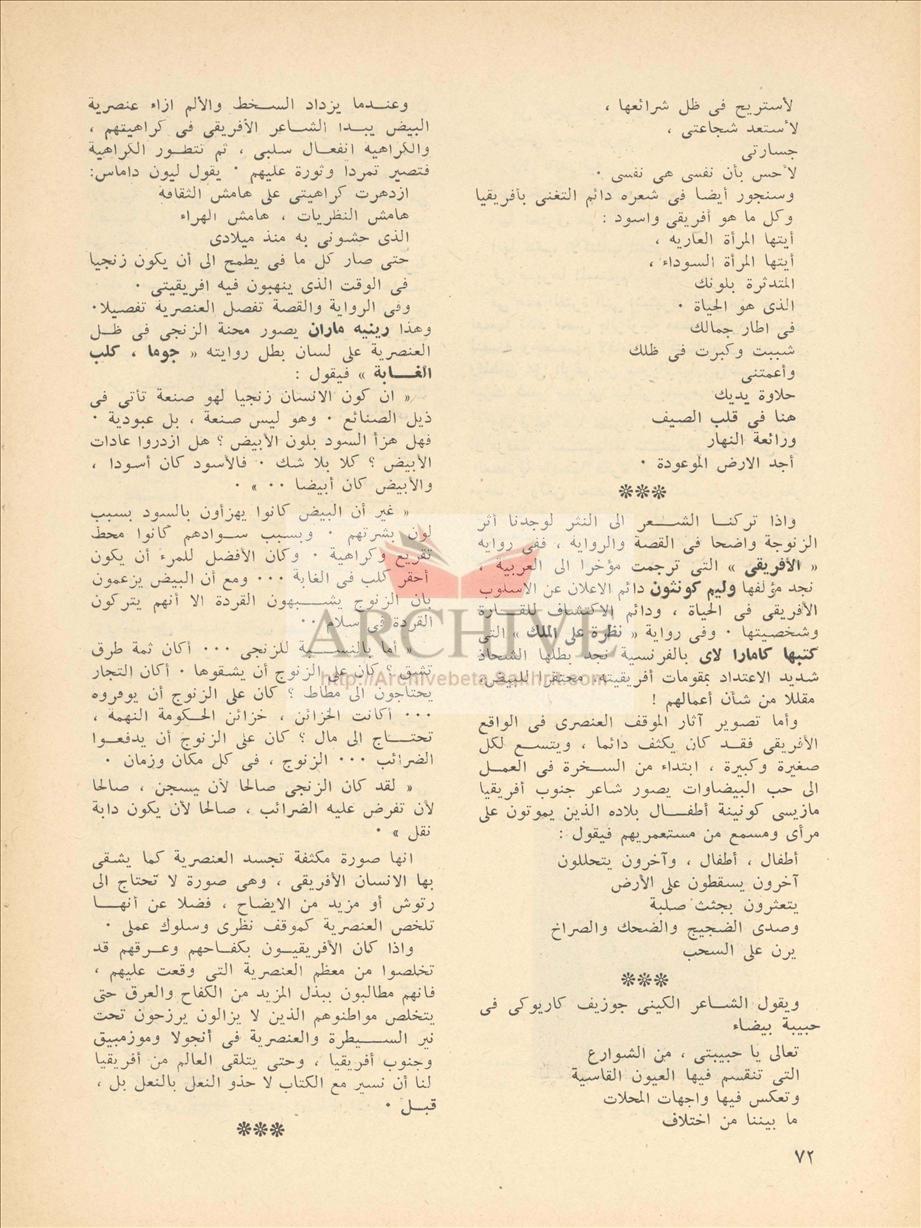 لأستريح فى ظل شرائعها ،
لأستعد شجاعتى ،
جسارتى
لأحس بأن نفسى هى نفسى ٠
وسنجور أيضا فى شعره دائم التغنى بأفريقيا
وكل ما هو أفريقى واسود :
أيتها المرأة العاريه ،
أيتها المرأة السوداء ،
المتدثرة بلونك
الذى هو الحياة ٠
فى اطار جمالك
شببت وكبرت فى ظلك
وأعمتنى
حلاوة يديك
هنا فى قلب الصيف
ورائعة النهار
أجد الارض الموعودة ٠
***
واذا تركنا الشعر الى النثر لوجدنا أثر
الزنوجة واضحا فى القصة والرواية ، ففى رواية
« الأفريقى » التى ترجمت مؤخرا الى العربية ،
نجد مؤلفها وليم كونتون دائم الاعلان عن الأسلوب
الأفريقى فى الحياة ، ودائم الاكتشاف للقارة
وشخصيتها ٠ وفى رواية « نظرة على الملك » التى
كتبها كامارا لاى بالفرنسية نجد بطلها الشحاذ
شديد الاعتداد بمقومات أفريقيته، محتقرا للبيض،
مقللا من شأن أعمالهم !
وأما تصوير آثار الموقف العنصرى فى الواقع
الأفريقى فقد كان يكثف دائما ، ويتسع لكل
صغيرة وكبيرة ، ابتداء من السخرة فى العمل
الى حب البيضاوات يصور شاعر جنوب أفريقيا
مازيسى كونينة أطفال بلاده الذين يموتون على
مرأى ومسمع من مستعمريهم فيقول :
أطفال ، أطفال ، وآخرون يتحللون
آخرون يسقطون على الأرض
يتعثرون بجثث صلبة
وصدى الضجيج والضحك والصراخ
يرن على السحب
***
ويقول الشاعر الكينى جوزيف كاريوكى فى
حبيبة بيضاء
تعالى يا حبيبتى ، من الشوارع
التى تنقسم فيها العيون القاسية
وتعكس فيها واجهات المحلات
ما بيننا من اختلاف
وعندما يزداد السخط والألم ازاء عنصرية
البيض يبدا الشاعر الأفريقى فى كراهيتهم ،
والكراهية انفعال سلبى ، ثم تتطور الكراهية
فتصير تمردا وثورة عليهم ٠ يقول ليون داماس:
ازدهرت كراهيتى على هامش الثقافة
هامش النظريات ، هامش الهراء
الذى حشونى به منذ ميلادى
حتى صار كل ما فى يطمح الى أن يكون زنجيا
فى الوقت الذى ينهبون فيه افريقيتى ٠
وفى الرواية والقصة تفصل العنصرية تفصيلا٠
وهذا رينيه ماران يصور محنة الزنجى فى ظل
العنصرية على لسان بطل روايته « جوما ، كلب
الغابة » فيقول :
« ان كون الانسان زنجيا لهو صنعة تأتى فى
ذيل الصنائع ٠ وهو ليس صنعة ، بل عبودية ٠
فهل هزأ السود بلون الأبيض ؟ هل ازدروا عادات
الأبيض ؟ كلا بلا شك ٠ فالأسود كان أسودا ،
والأبيض كان أبيضا ٠٠ » ٠
« غير أن البيض كانوا يهزأون بالسود بسبب
لون بشرتهم ٠ وبسبب سوادهم كانوا محط
تقريع وكراهية ٠ وكان الأفضل للمرء أن يكون
أحقر كلب فى الغابة ٠٠٠ ومع أن البيض يزعمون
بأن الزنوج يشبهون القردة الا أنهم يتركون
القردة فى سلام ٠٠
« أما بالنسبة للزنجى ٠٠٠ أكان ثمة طرق
تشق ؟ كان على الزنوج أن يشقوها ٠ أكان التجار
يحتاجون الى مطاط ؟ كان على الزنوج أن يوفروه
٠٠٠ أكانت الخزائن ، خزائن الحكومة النهمة ،
تحتاج الى مال ؟ كان على الزنوج أن يدفعوا
الضرائب ٠٠٠ الزنوج ، فى كل مكان وزمان ٠
« لقد كان الزنجى صالحا لأن يسجن ، صالحا
لأن تفرض عليه الضرائب ، صالحا لأن يكون دابة
نقل » ٠
انها صورة مكثفة تجسد العنصرية كما يشقى
بها الانسان الأفريقى ، وهى صورة لا تحتاج الى
رتوش أو مزيد من الايضاح ، فضلا عن أنها
تلخص العنصرية كموقف نظرى وسلوك عملى ٠
واذا كان الأفريقيون بكفاحهم وعرقهم قد
تخلصوا من معظم العنصرية التى وقعت عليهم ،
فانهم مطالبون ببذل المزيد من الكفاح والعرق حتى
يتخلص مواطنوهم الذين لا يزالون يرزحون تحت
نير السيطرة والعنصرية فى أنجولا وموزمبيق
وجنوب أفريقيا ، وحتى يتلقى العالم من أفريقيا
لنا أن نسير مع الكتاب لا حذو النعل بالنعل بل ،
قبل ٠
***
٧٢
ARCHIVE
http://Archivebeta.Sakhrit.com